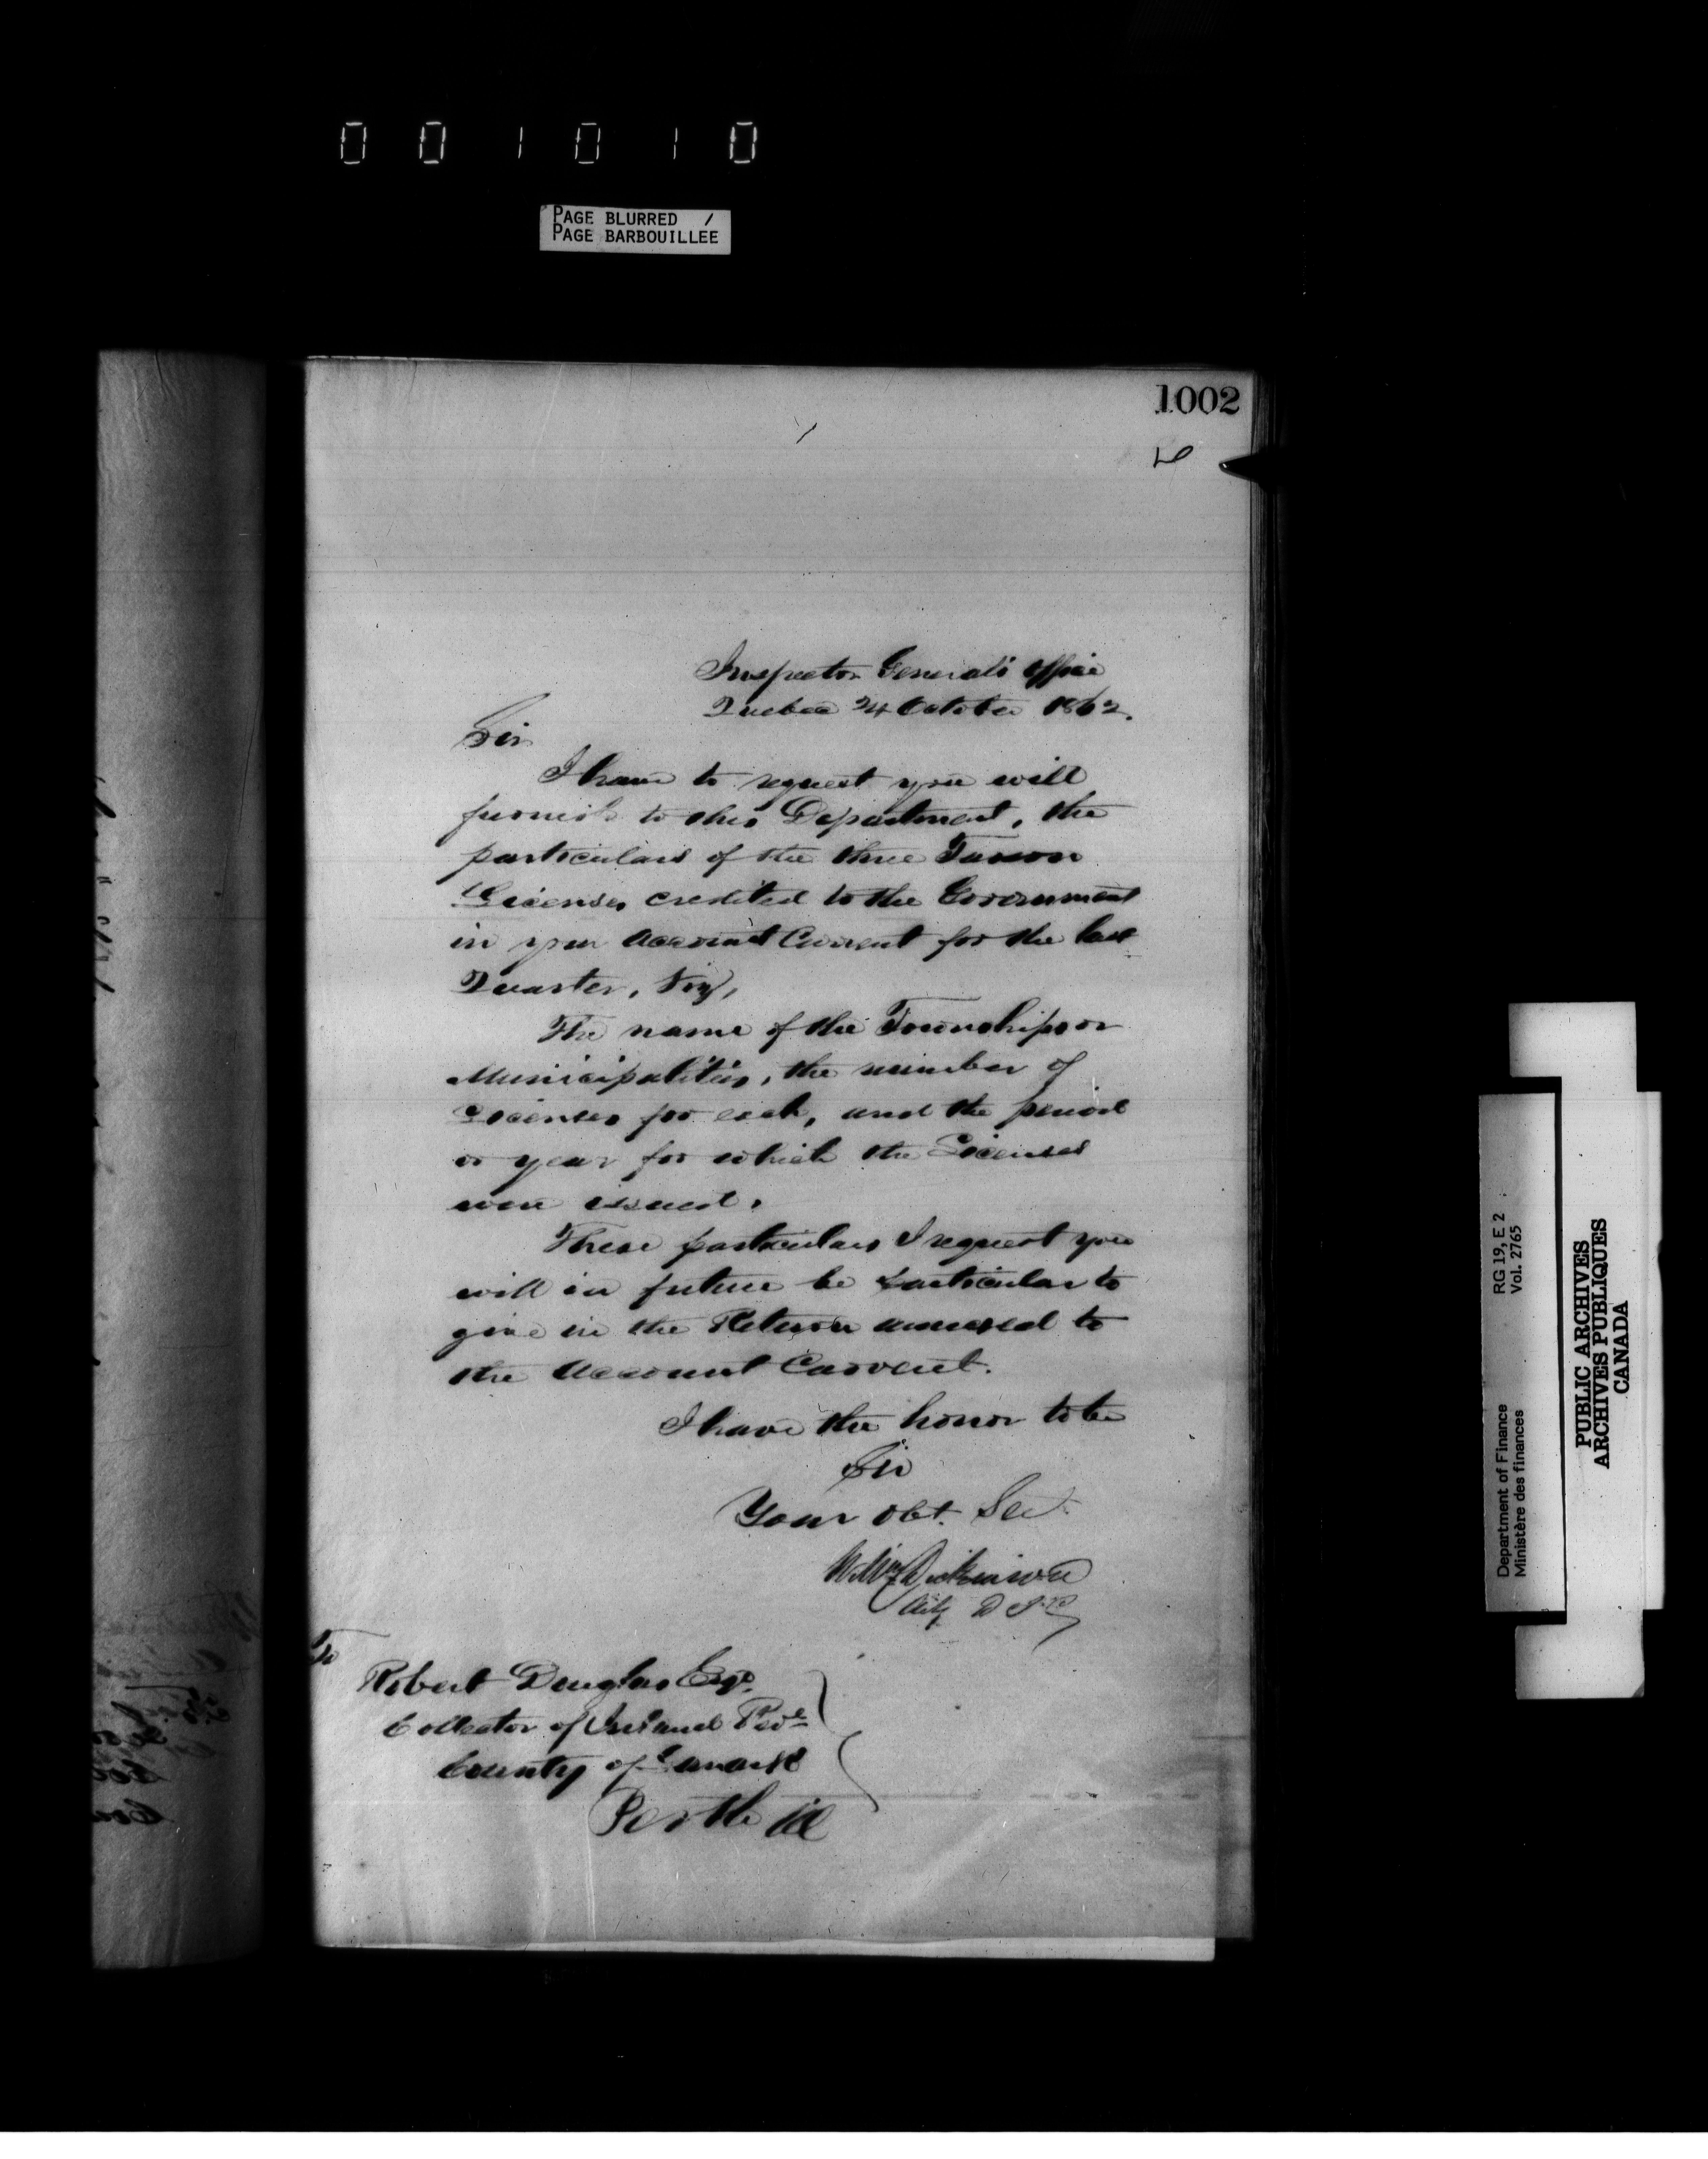 0 0 1 0 1 0
PAGE BLURRED /
PAGE BARBOUILLEE
1002
Inspector General's Office
Quebec 24 October 1862.
Sir
I have to request you will
furnish to this Department, the
particulars of the three Tavern
Licenses credited to the Government
in your Account Current for the last
Quarter, Viz,
The name of the Townships or
Municipalities, the number of
Licenses for each, and the period
or year for which the Licenses
were issued.
These particulars I request you
will in future be particular to
give in the Return annexed to
the Account Current.
I have the honor to be
Sir
Your Obt. Set.
Wm Dickinson
D I G
To
Robert Douglas Esqr.
Collector of Inland Reve
County of Lanark
Perth
Department of Finance RG 19, E 2
Ministère des finances Vol. 2765
PUBLIC ARCHIVES
ARCHIVES PUBLIQUES
CANADA